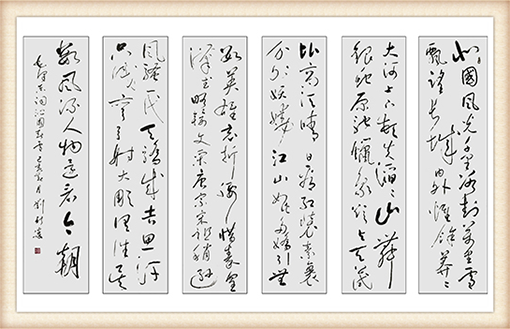 北國風光千里冰封万里雪
飘望长城内外惟馀莽〻
大河上下顿失滔〻山舞
银蛇原驰蜡象欲与天试
比高须晴日看红装素裹
分外妖娆江山如此多娇引無
数英雄竞折腰惜秦皇
漢武略输文采唐宗宋祖稍逊
风骚一代天骄成吉思汗
只识弯弓射大雕俱往矣
数风流人物还看今朝
毛泽东词沁园春雪